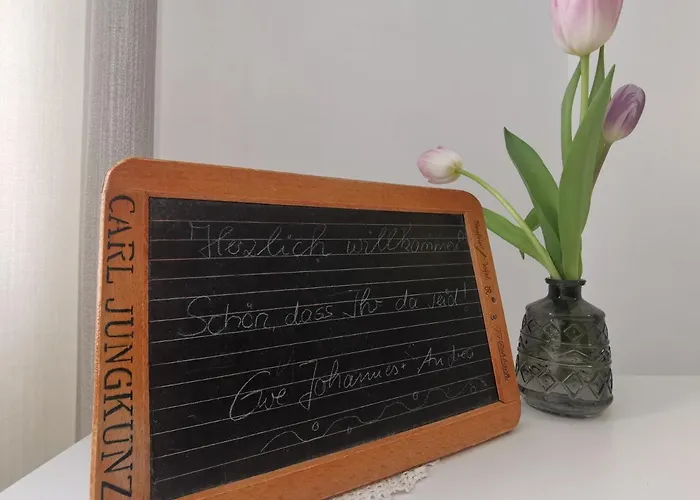 CARL JUNGKUNZ
Herzlich willkommen
Schön, dass Ihr da seid!
Eure Johannes + Andrea